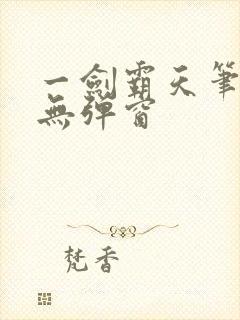 一劍霸天筆
無彈窗
梵香